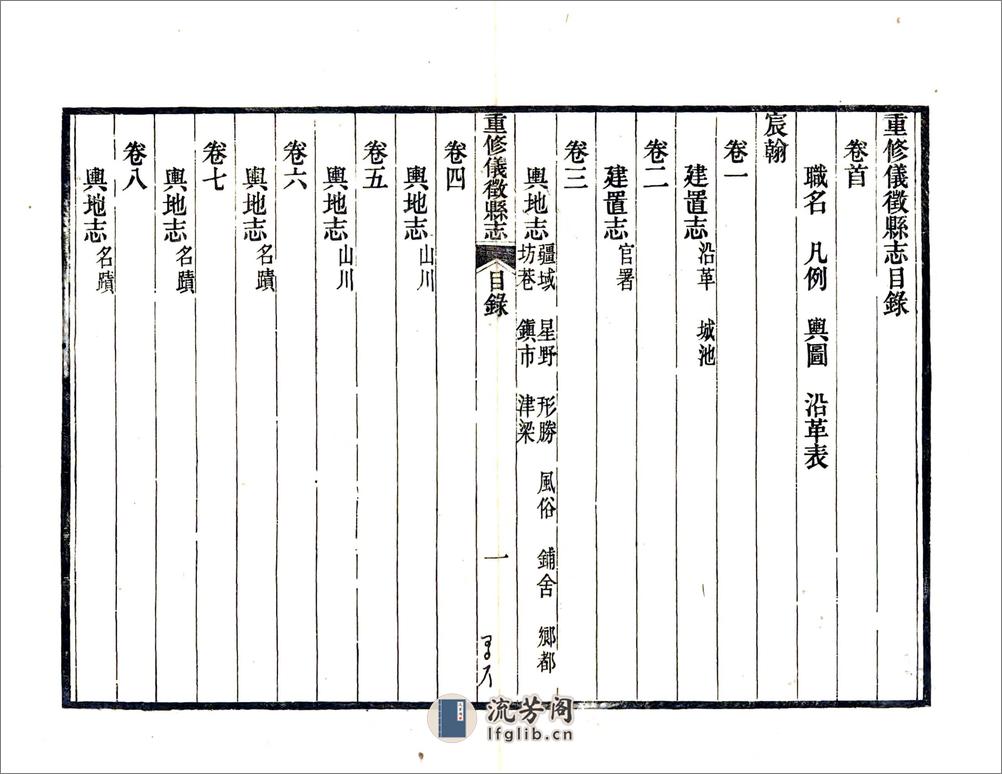 重修儀徵縣志目錄
卷首
職名 凡例 輿圖 沿革表
宸翰
卷一
建置志 沿革 城池
卷二
建置志 官署
卷三
輿地志 疆域 星野 形勝 風俗 鋪舍 鄉都
坊巷 鎮市 津梁
重修儀徵縣志 目錄 一
卷四
輿地志 山川
卷五
輿地志 山川
卷六
輿地志 名蹟
卷七
輿地志 名蹟
卷八
輿地志 名蹟
流芳阁
lfglib.cn